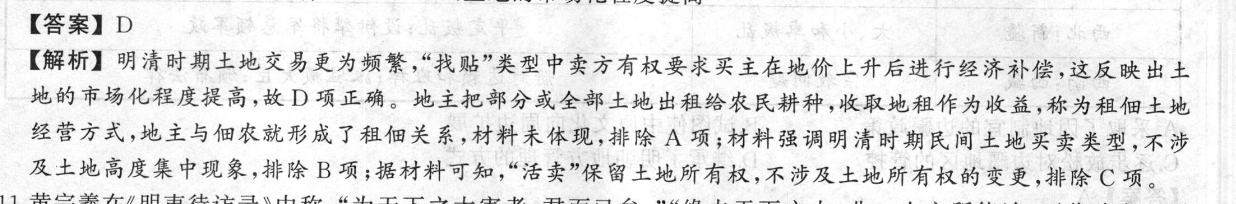 【答案】D
【解析】明清时期土地交易更为频繁,“找贴”类型中卖方有权要求买主在地价上升后进行经济补偿,这反映出土
地的市场化程度提高,故 D 项正确。地主把部分或全部土地出租给农民耕种,收取地租作为收益,称为租佃土地
经营方式,地主与佃农就形成了租佃关系,材料未体现,排除 A 项;材料强调明清时期民间土地买卖类型,不涉
及土地高度集中现象,排除 B 项;据材料可知,“活卖”保留土地所有权,不涉及土地所有权的变更,排除 C 项。